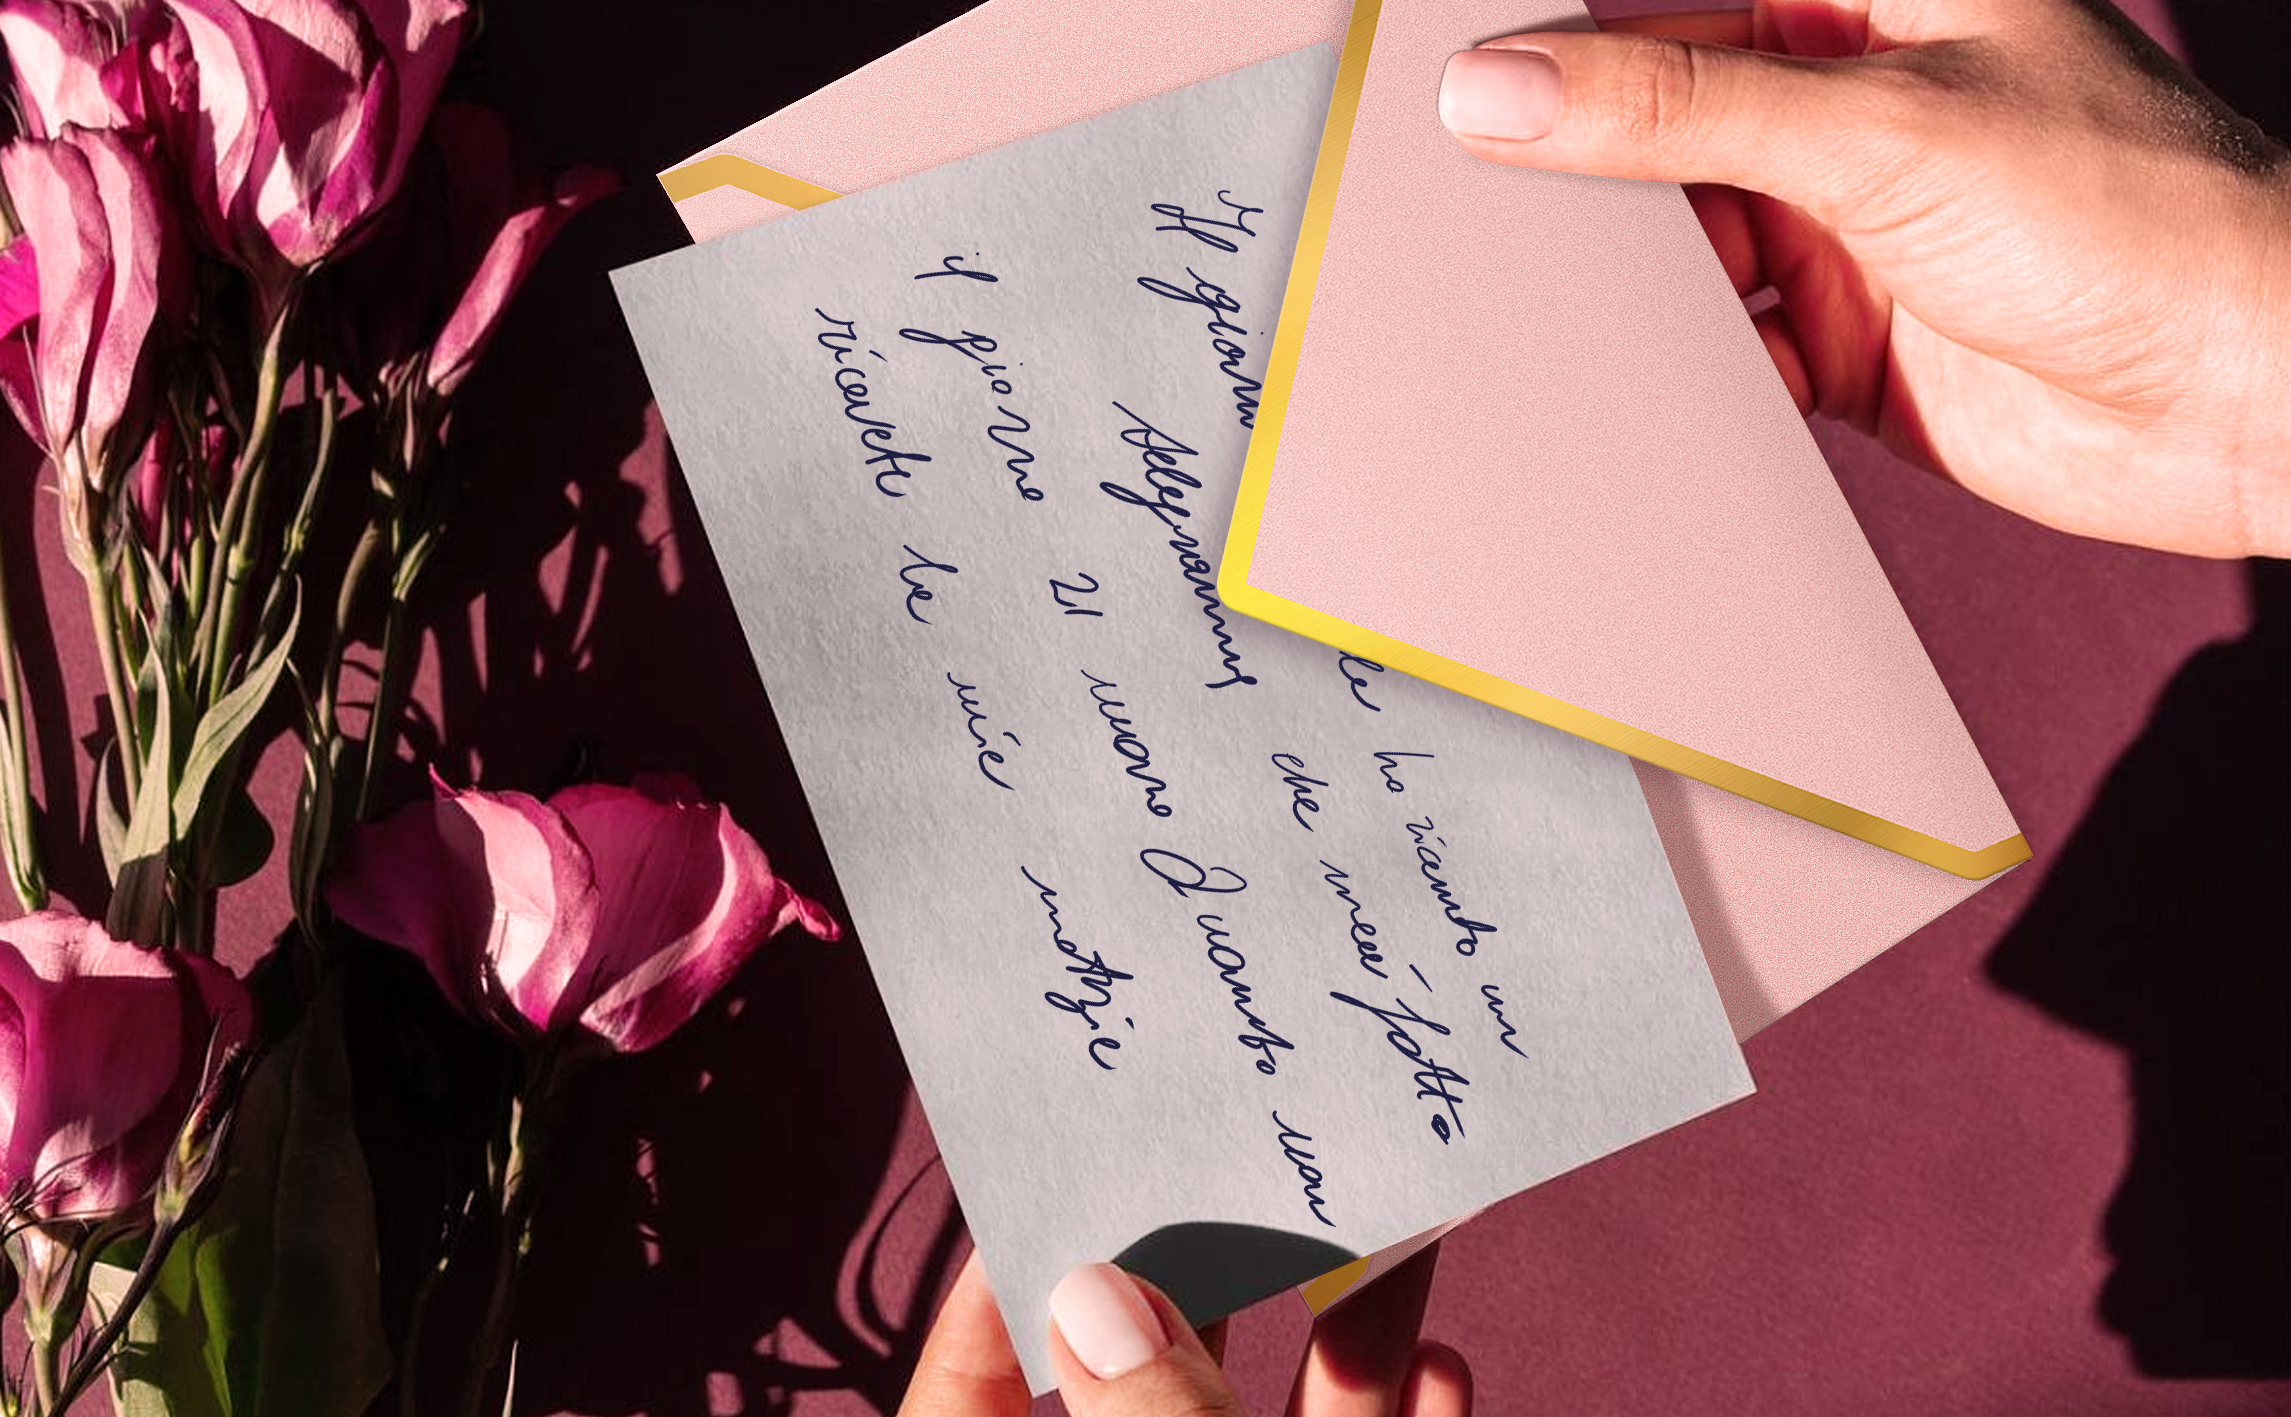 Il giorn le ho ricevuto un
telegramma che fatto
il giorno 21 Quando non
ricevete le mie notizie